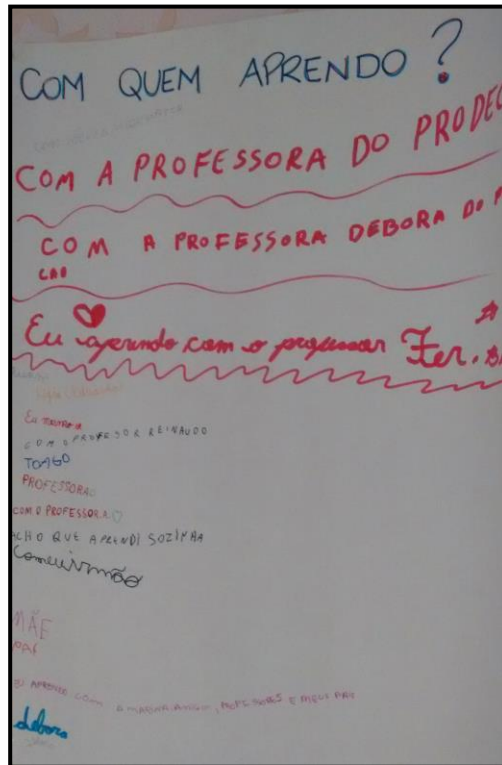 COM QUEM APRENDO ?
COM A PROFESSORA DO PRODEC
COM A PROFESSORA DEBORA DO P
CAO
Eu aprendo com o professor Fer.
Eu mesma
COM O PROFESSOR REINAUDO
TOAGO
PROFESSORA
COM O PROFESSORA
CHO QUE APRENDI SOZINHA
Com eu irmão
MÃE
PAI
EU APRENDI COM A MINHA , PROFESSORES E MEU PAI
debora